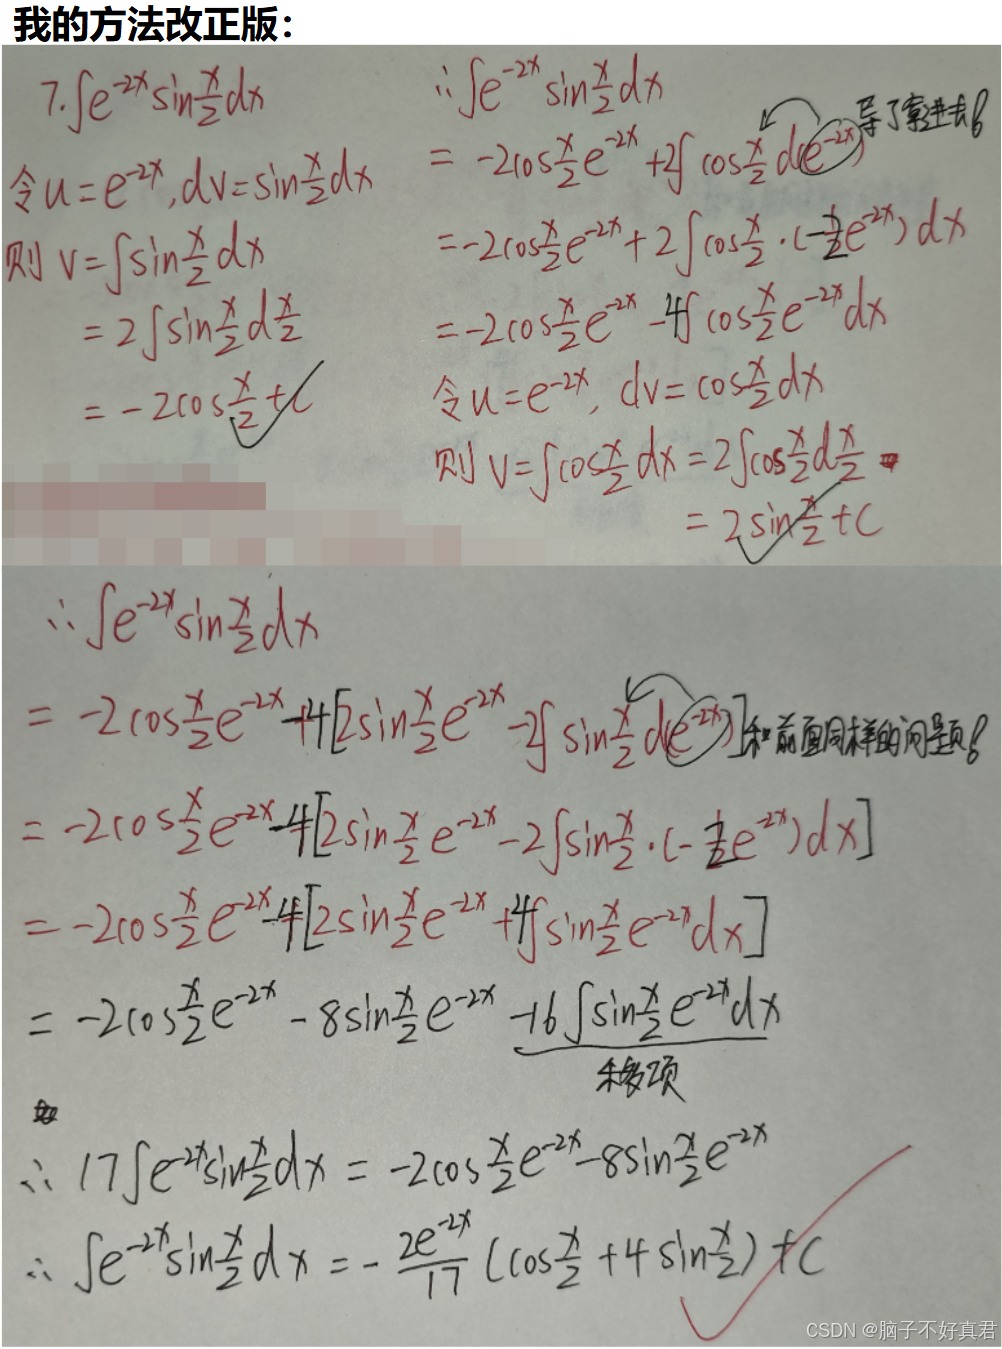 我的方法改正版：
7. ∫e^{-2x} sin x/2 dx
令 u = e^{-2x}, dv = sin x/2 dx
则 v = ∫sin x/2 dx
= 2∫sin x/2 d x/2
= -2cos x/2 + C
∴ ∫e^{-2x} sin x/2 dx
= -2cos x/2 e^{-2x} + 2∫cos x/2 d(e^{-2x}) 导了塞进去！
= -2cos x/2 e^{-2x} + 2∫cos x/2 · (-2e^{-2x}) dx
= -2cos x/2 e^{-2x} - 4∫cos x/2 e^{-2x} dx
令 u = e^{-2x}, dv = cos x/2 dx
则 v = ∫cos x/2 dx = 2∫cos x/2 d x/2
= 2sin x/2 + C
∴ ∫e^{-2x} sin x/2 dx
= -2cos x/2 e^{-2x} - 4[2sin x/2 e^{-2x} - 2∫sin x/2 d(e^{-2x})] 和前面同样的问题！
= -2cos x/2 e^{-2x} - 4[2sin x/2 e^{-2x} - 2∫sin x/2 · (-2e^{-2x}) dx]
= -2cos x/2 e^{-2x} - 4[2sin x/2 e^{-2x} + 4∫sin x/2 e^{-2x} dx]
= -2cos x/2 e^{-2x} - 8sin x/2 e^{-2x} - 16∫sin x/2 e^{-2x} dx
移项
∴ 17∫e^{-2x} sin x/2 dx = -2cos x/2 e^{-2x} - 8sin x/2 e^{-2x}
∴ ∫e^{-2x} sin x/2 dx = - 2e^{-2x}/17 (cos x/2 + 4 sin x/2) + C
CSDN @脑子不好真君